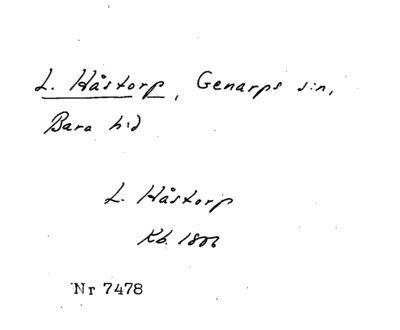 L. Håstorp, Genarps s:n,
Bara h:d
L. Håstorp
Kb. 1806
Nr 7478